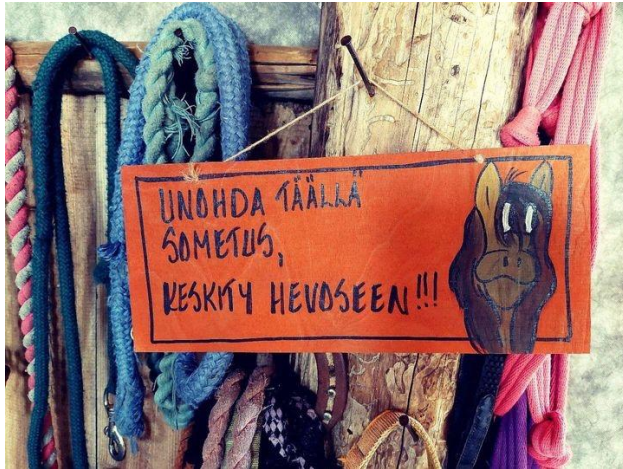 UNOHDA TÄÄLLÄ
SOMETUS,
KESKITY HEVOSEEN!!!